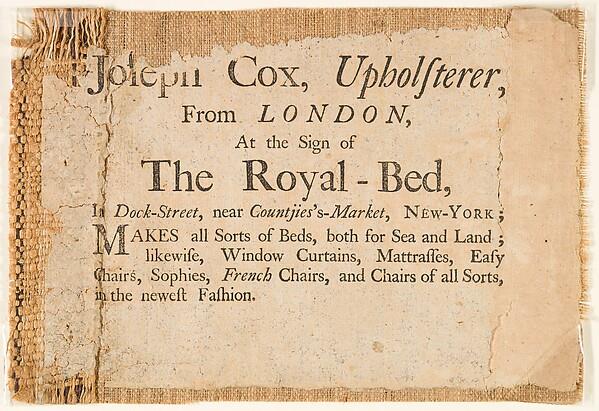 Joſeph Cox, Upholſterer,
From LONDON,
At the Sign of
The Royal-Bed,
In Dock-Street, near Countjies's-Market, NEW-YORK;
MAKES all Sorts of Beds, both for Sea and Land;
likewiſe, Window Curtains, Mattraſſes, Eaſy
Chairs, Sophies, French Chairs, and Chairs of all Sorts,
in the neweſt Faſhion.